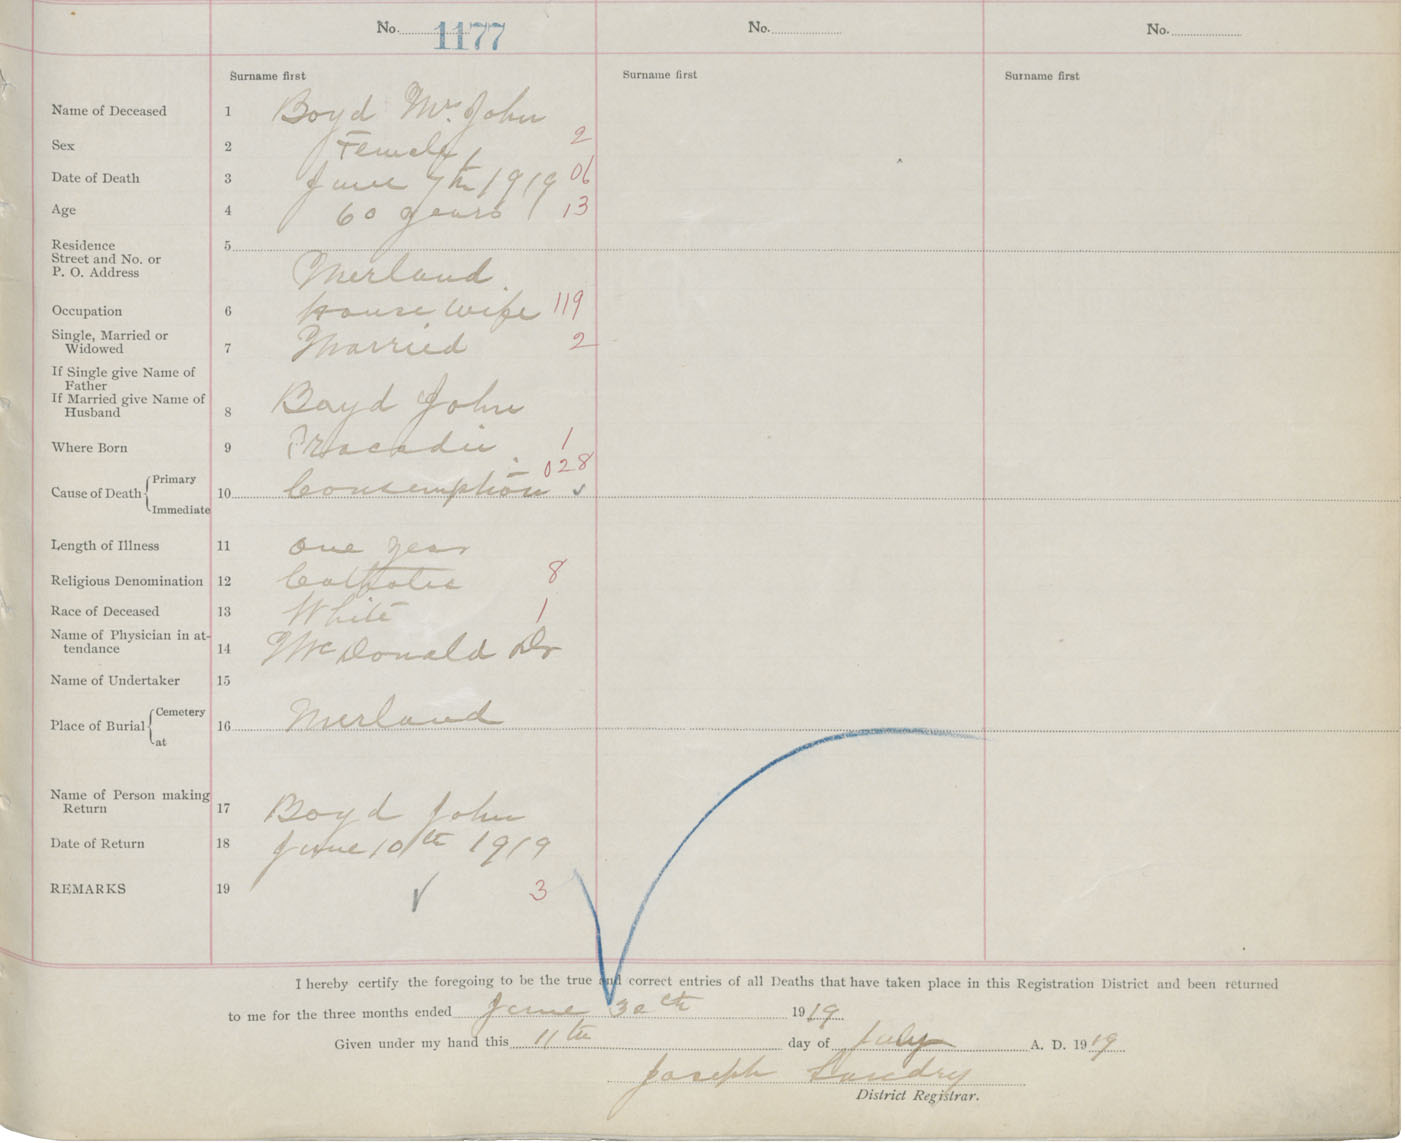 No. 1177 No. No.
Surname first Surname first Surname first
Name of Deceased 1 Boyd Mrs. John
Sex 2 Female 2
Date of Death 3 June 7th 1919 06
Age 4 60 years 13
Residence 5
Street and No. or
P. O. Address Merland
Occupation 6 House wife 119
Single, Married or
Widowed 7 Married 2
If Single give Name of
Father
If Married give Name of
Husband 8 Boyd John
Where Born 9 Tracadie 1
028
Cause of Death Primary 10 Consumption
Immediate
Length of Illness 11 one year
Religious Denomination 12 Catholic 8
Race of Deceased 13 White 1
Name of Physician in at-
tendance 14 McDonald Dr
Name of Undertaker 15
Place of Burial Cemetery 16 Merland
at
Name of Person making
Return 17 Boyd John
Date of Return 18 June 10th 1919
REMARKS 19 ✓ 3
I hereby certify the foregoing to be the true and correct entries of all Deaths that have taken place in this Registration District and been returned
to me for the three months ended June 30th 1919
Given under my hand this 11th day of July A. D. 1919
Joseph Landry
District Registrar.